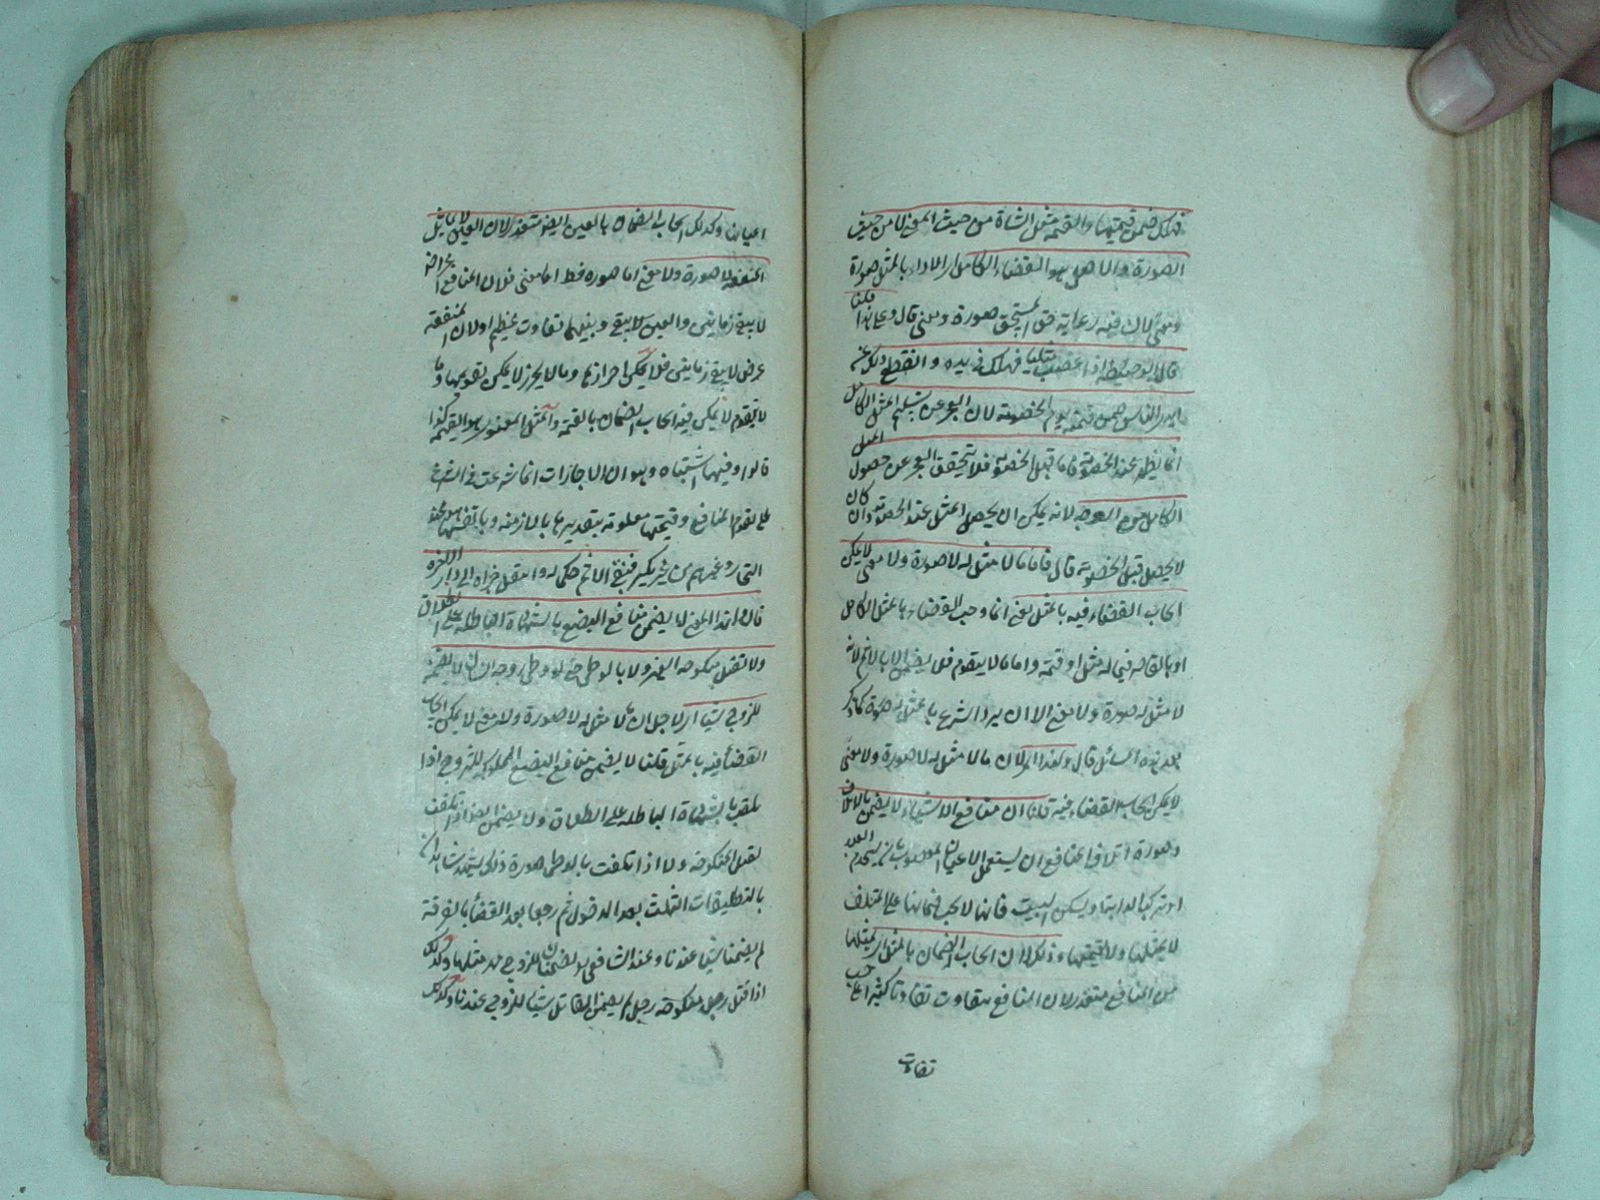 فهلك ضمن قيمتها والقيمة مثل الشاة من حيث المعنى لا من حيث
الصورة والاصل هو القضاء الكامل اى الاداء بالمثل صورة
ومعنى لان فيه رعاية حق المستحق صورة ومعنى قال وعلى هذا قلنا
قال ابو حنيفة اذا غصب مثليا فهلك فى يده وانقطع ذلك عن
ايدى الناس ضمن قيمته يوم الخصومة لان العجز عن تسليم المثل الكامل
انما يظهر عند الخصومة فاما قبل الخصومة فلا يتحقق العجز عن حصول المثل
الكامل من وجه لانه يمكن ان يحصل المثل عند الخصومة وان كان
لا يحصل قبل الخصومة قال فاما ما لا مثل له لا صورة ولا معنى لا يمكن
ايجاب القضاء فيه بالمثل يعنى انما وجب القضاء بالمثل الكامل
او بالقاصر فيما له مثل او قيمة واما ما لا يتقوم فلا يضمن الا بالاثم لانه
لا مثل له صورة ولا معنى الا ان يرد الشرع بالمثل له صورة كما ذكر
بعد هذه المسائل قال ولهذا اى لان ما لا مثل له لا صورة ولا معنى
لا يمكن ايجاب القضاء فيه قلنا ان منافع الاشياء لا يضمن بالاتلاف
وصورة اتلاف المنافع ان يستعمل الاعيان المغصوبة بان يستخدم العبد
او يركب الدابة او يسكن البيت فانها لا يجب ضمانها على المتلف
لا بمثلها ولا بقيمتها وذلك لان ايجاب الضمان بالمثل اى بمثلها
من المنافع متعذر لان المنافع يتفاوت تفاوتا كثيرا على حسب
تفاوت
اعيان وكذلك ايجاب الضمان بالعين ايضا متعذر لان العين لا يماثل
المنفعة لا صورة ولا معنى اما صورة فظ اما معنى فلان المنافع اعراض
لا يبقى زمانين والعين يبقى وبينهما تفاوت عظيم او لان المنفعة
عرض لا يبقى زمانين فلا يمكن احرازها وما لا يحرز لا يمكن تقويمها وما
لا يتقوم لا يمكن فيه ايجاب الضمان بالقيمة والمثل المعنوى هو القيمة كذا
قالوا وفيها اشتباه وهو ان الاجارات انما شرعت فى الشرع
على تقوم المنافع وقيمتها معلومة بتقديرها بالازمنة
التى من غير نكير فبقى الاثم حكما له وانتقل جزاه الى دار الاخرة
قال ولهذا المعنى لا يضمن منافع البضع بالشهادة الباطلة على الطلاق
ولا بقتل منكوحة الغير ولا بالوطى حتى لو وطى زوجة انسان لا يضمن
للزوج شيئا اى لاجل ان ما لا مثل له لا صورة ولا معنى لا يمكن ايجاب
القضاء فيه بالمثل قلنا لا يضمن منافع البضع المملوكة للزوج اذا
تلفت بالشهادة الباطلة على الطلاق ولا يضمن ايضا اذا تلفت
بقتل المنكوحة ولا اذا تلفت بالوطى صورة ذلك شهد شاهدان
بالتطليقات الثلث بعد الدخول ثم رجعا بعد القضاء بالفرقة
لم يضمنا شيئا عندنا وعند الشافعى يضمنان للزوج مهر مثلها وكذلك
اذا قتل رجل منكوحة رجل لم يضمن القاتل شيئا للزوج عندنا وكذلك